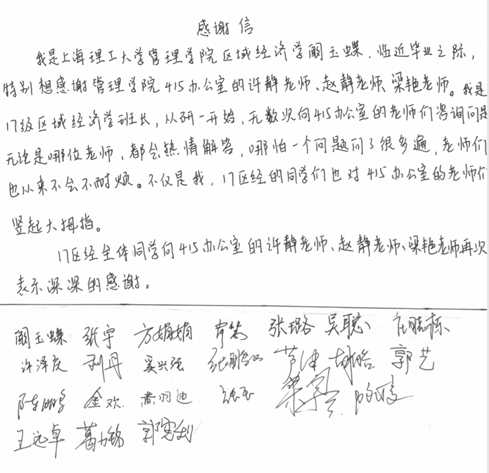 感谢信
我是上海理工大学管理学院区域经济学阚玉蝶，临近毕业之际，
特别想感谢管理学院415办公室的许静老师、赵静老师、梁艳老师。我是
17级区域经济学班长，从研一开始，无数次向415办公室的老师们咨询问题
无论是哪位老师，都会热情解答，哪怕一个问题问了很多遍，老师们
也从来不会不耐烦。不仅是我，17区经的同学们也对415办公室的老师们
竖起大拇指。
17区经全体同学向415办公室的许静老师、赵静老师、梁艳老师再次
表示深深的感谢。
阚玉蝶 张宇 方娟娟 张璐 吴聪
刘丹 郭艺
金欢
王远卓